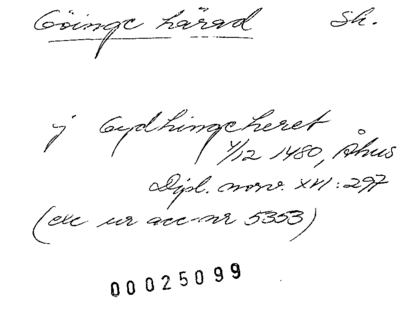 Göinge härad Sk.
j Gydhingeheret
4/12 1480, Åhus
Dipl. norv. XVI: 297
(exc ur acc-nr 5353)
00025099